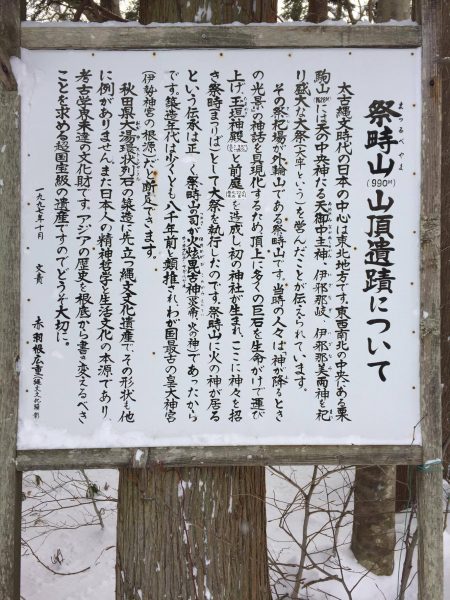 まつるべやま
祭畤山(990M)山頂遺蹟について
太古縄文時代の日本の中心は東北地方です。東西南北の中央にある栗
駒山には天の中央神たる天御中主神、伊邪那岐、伊邪那美両神を祀
り盛大な大祭(天牢という)を営んだことが伝えられています。
その祭祀場が外輪山である祭畤山です。当時の人々は神が降るとき
の光景の神話を具現化するため、頂上に多くの巨石を生命がけで運び
上げ、玉垣神殿と前庭を造成し初の神社が生まれ、ここに神々を招
き祭畤(まつりば)として大祭を執行したのです。祭畤山に火の神が居る
という伝承は正しく祭畤山の司が火炫毘古神(災禍、火の神)であったから
です。築造年代は少くとも八千年前と類推され、わが国最古の皇大神宮
(伊勢神宮の根源)だと断定できます。
秋田県大湯環状列石の築造に先立つ縄文文化遺産で、その形状も他
に例がありません。また日本人の精神哲学と生活文化の本源であり
考古学専来造の文化財です。アジアの歴史を根底から書き変えるべき
ことを求める超国宝級の遺産ですのでどうぞ大切に。
一九九七年十月
文責 赤羽根